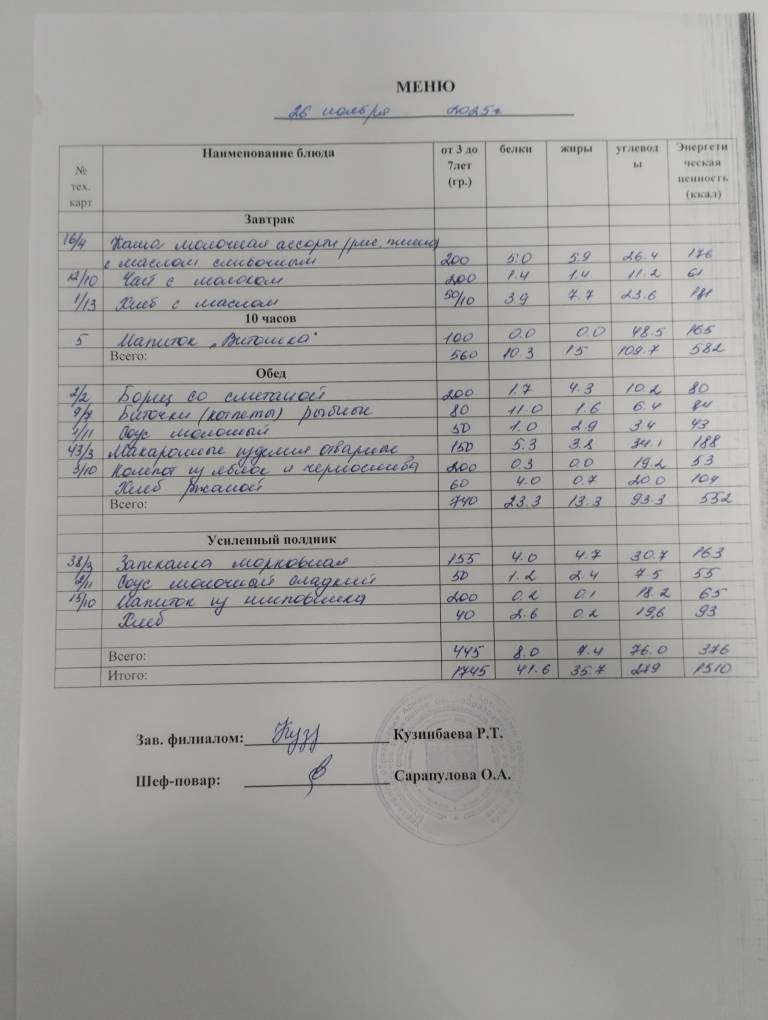 МЕНЮ
26 ноября 2025г
№ тех. карт Наименование блюда от 3 до 7лет (гр.) белки жиры углеводы Энергетическая ценность (ккал)
Завтрак
16/4 Каша молочная ассорти (рис, пшено)
с маслом сливочным 200 5.0 5.9 26.4 176
12/10 Чай с молоком 200 1.4 1.4 11.2 61
1/13 Хлеб с маслом 50/10 3.9 7.7 23.6 181
10 часов
5 Напиток „Витошка" 100 0.0 0.0 48.5 165
Всего: 560 10.3 15 109.7 582
Обед
2/2 Борщ со сметаной 200 1.7 4.3 10.2 80
9/7 Биточки (котлеты) рыбные 80 11.0 1.6 6.4 84
1/11 Соус молочный 50 1.0 2.9 3.4 43
43/3 Макаронные изделия отварные 150 5.3 3.8 34.1 188
3/10 Компот из яблок и чернослива 200 0.3 0.0 19.2 53
Хлеб ржаной 60 4.0 0.7 20.0 104
Всего: 740 23.3 13.3 93.3 552
Усиленный полдник
38/3 Запеканка морковная 155 4.0 4.7 30.7 163
2/11 Соус молочный сладкий 50 1.2 2.4 7.5 55
15/10 Напиток из шиповника 200 0.2 0.1 18.2 65
Хлеб 40 2.6 0.2 19,6 93
Всего: 445 8.0 7.4 76.0 376
Итого: 1745 41.6 35.7 279 1510
Зав. филиалом: Кузинбаева Р.Т.
Шеф-повар: Сарапулова О.А.